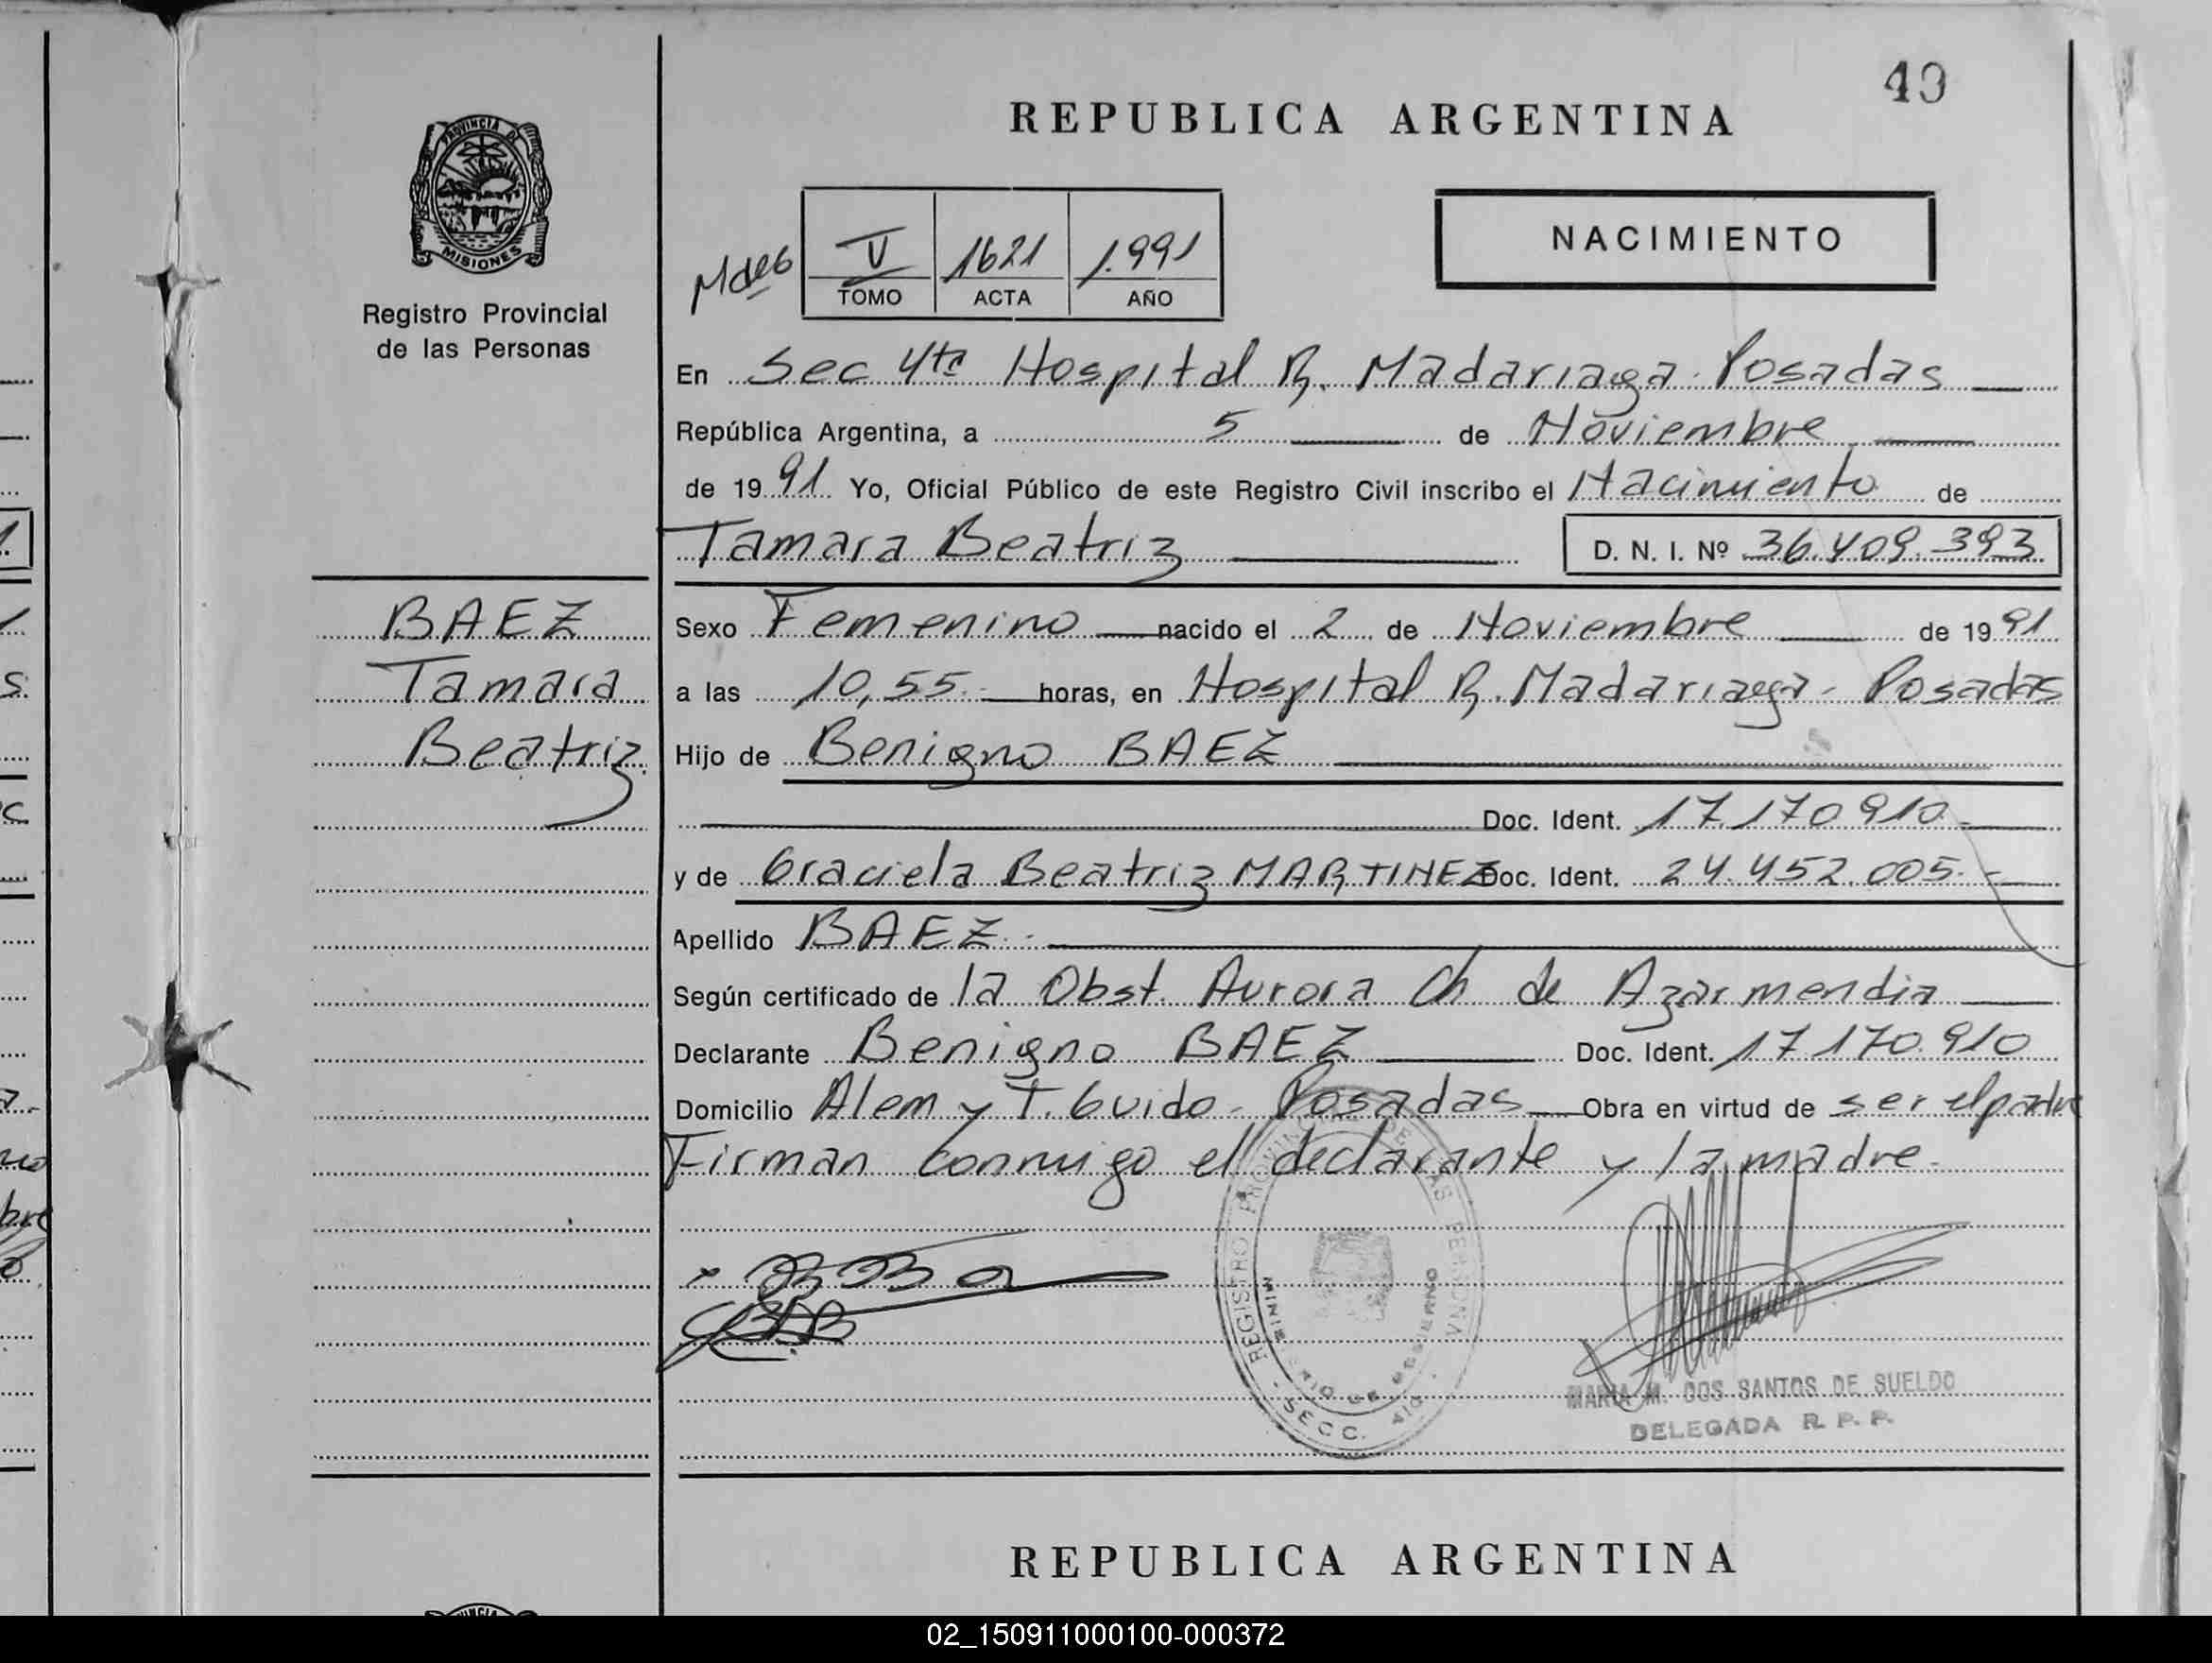 43
REPUBLICA ARGENTINA
PROVINCIA DE
MISIONES
Registro Provincial
de las Personas
V 1621 1.991
TOMO ACTA AÑO
NACIMIENTO
En Sec 4ta Hospital R. Madariaga - Posadas
República Argentina, a 5 de Noviembre
de 1991 Yo, Oficial Público de este Registro Civil inscribo el Nacimiento de
Tamara Beatriz D. N. I. Nº 36.409.393
BAEZ
Tamara
Beatriz
Sexo Femenino nacido el 2 de Noviembre de 1991
a las 10,55.- horas, en Hospital R. Madariaga - Posadas
Hijo de Benigno BAEZ
Doc. Ident. 17.170.910
y de Graciela Beatriz MARTINEZ Doc. Ident. 24.452.005.-
Apellido BAEZ.-
Según certificado de la Obst. Aurora Ch de Azarmendia
Declarante Benigno BAEZ Doc. Ident. 17.170.910
Domicilio Alem y T. Guido - Posadas Obra en virtud de ser el padre
Firman conmigo el declarante y la madre.-
REGISTRO PROVINCIAL DE LAS PERSONA
SECC. 4ta
MARIA M. DOS SANTOS DE SUELDO
DELEGADA R. P. P.
REPUBLICA ARGENTINA
02_150911000100-000372